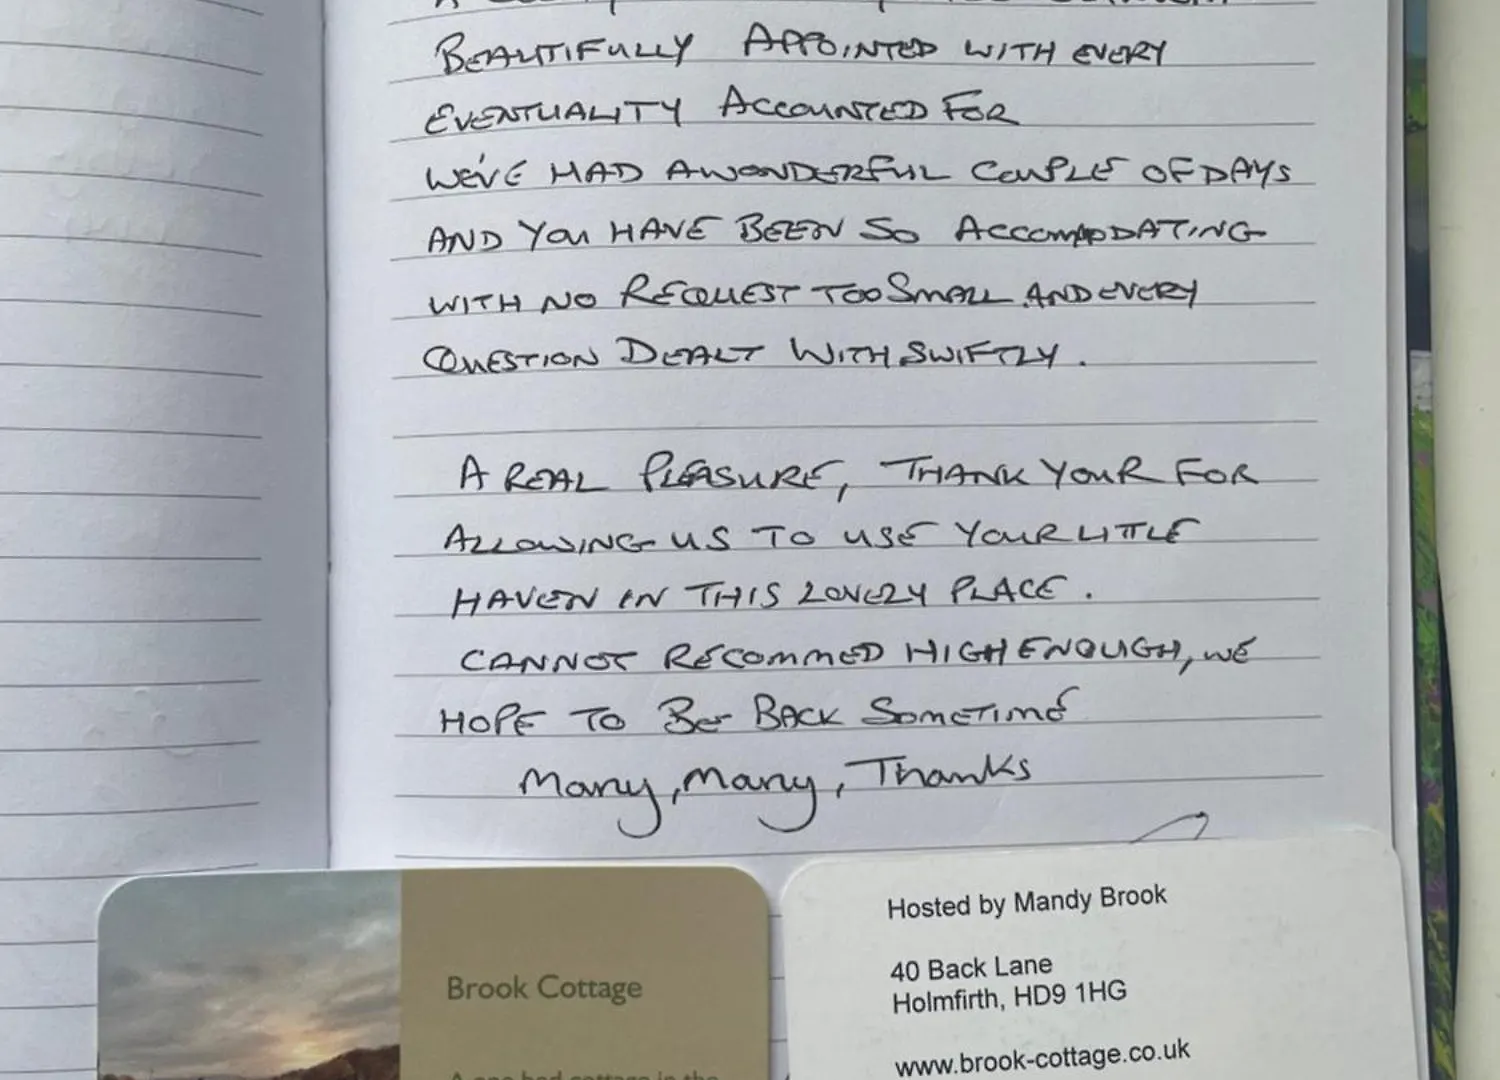 BEAUTIFULLY APPOINTED WITH EVERY
EVENTUALITY ACCOUNTED FOR
WE'VE HAD A WONDERFUL COUPLE OF DAYS
AND YOU HAVE BEEN SO ACCOMADATING
WITH NO REQUEST TOO SMALL AND EVERY
QUESTION DEALT WITH SWIFTLY.
A REAL PLEASURE, THANK YOUR FOR
ALLOWING US TO USE YOUR LITTLE
HAVEN IN THIS LOVELY PLACE.
CANNOT RECOMMED HIGH ENOUGH, WE
HOPE TO BE BACK SOMETIME
Many, Many, Thanks
Brook Cottage
A one bed cottage in the
Hosted by Mandy Brook
40 Back Lane
Holmfirth, HD9 1HG
www.brook-cottage.co.uk